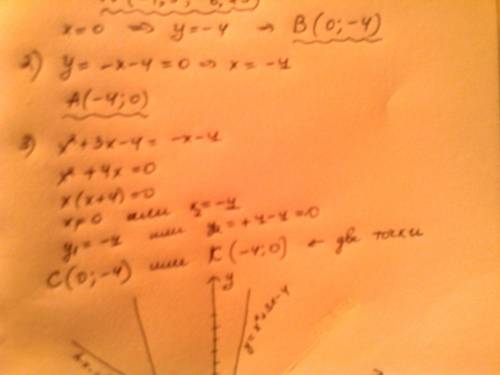 x=0 ⇒ y=-4 → B(0;-4)
2) y = -x-4=0 ⇒ x=-4
A(-4;0)
3) x²+3x-4 = -x-4
x²+4x=0
x(x+4)=0
x₁=0 или x₂=-4
y₁=-4 или y₂=+4-4=0
C(0;-4) или K(-4;0) ← две точки
y
y=x²+3x-4